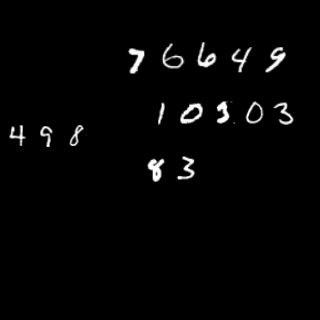 76649
10303
498
83